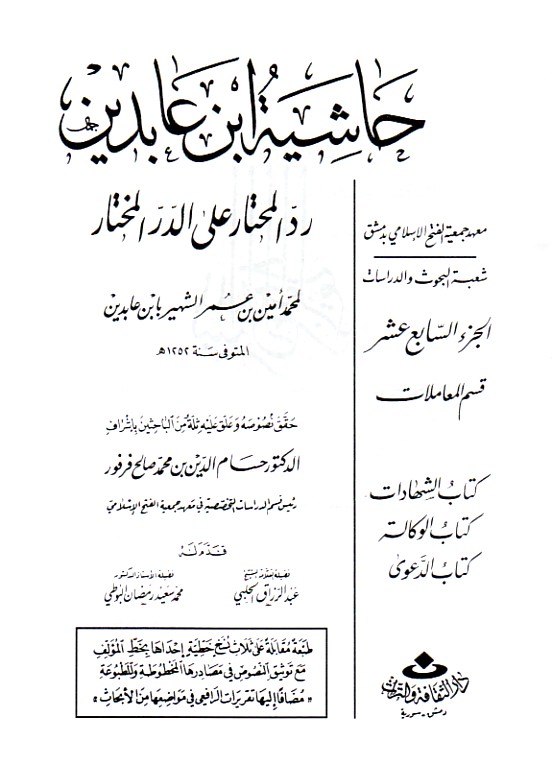 حَاشِيَةُ ابْن عَابدين
ردّ المحتار على الدّرّ المختار
لمحمّد أمين بن عمر الشهير بابن عابدين
المتوفى سنة ١٢٥٢ هـ
حَقَّقَ نُصُوصَهُ وَعَلَّقَ عَلَيْهِ ثلّةٌ مِنَ الباحِثينَ بِإِشْرافِ
الدكتور حسام الدّين بن محمد صالح فرفور
رئيس قسم الدراسات التخصصية في معهد جمعية الفتح الإسلامي
قدّم له
فضيلة العلّامة الشيخ
عبد الرزاق الحلبي
فضيلة الأستاذ الدكتور
محمد سعيد رمضان البوطي
طبعَة مُقابَلة عَلى ثَلاث نُسَخ خَطيّة إحْداهَا بِخَطّ المُؤلِّف
مَعَ تَوثيق النّصُوص في مَصَادِرهَا المَخْطُوطة وَالمَطبُوعَة
« مُضَافًا إليهَا تقريرات الرّافعي في مَوَاضِعهَا مِنَ الأبحَاث »
معهد جمعية الفتح الإسلامي بدمشق
شعبة البحوث والدراسات
الجزء السّابع عشر
قسم المعاملات
كتابُ الشهادات
كتابُ الوكالة
كتابُ الدّعوى
دار الثقافة والتراث
دمشق - سورية